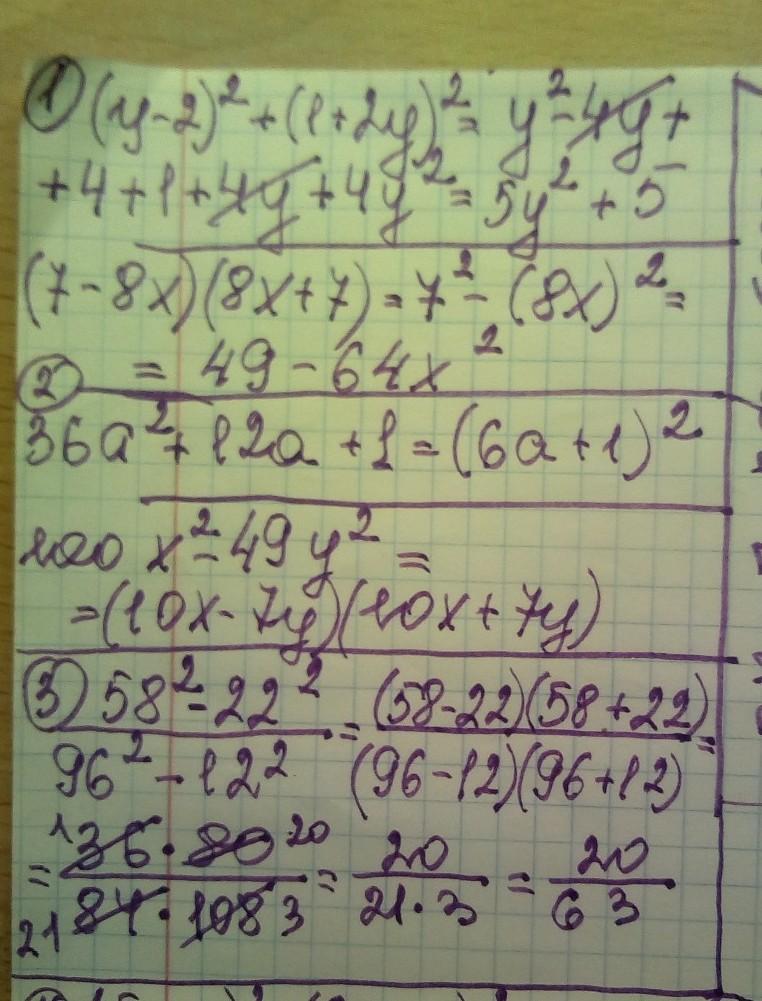 1) (y-2)² + (1+2y)² = y² - 4y +
+ 4 + 1 + 4y + 4y² = 5y² + 5
(7-8x)(8x+7) = 7² - (8x)² =
= 49 - 64x²
2) 36a² + 12a + 1 = (6a+1)²
100x² - 49y² =
= (10x-7y)(10x+7y)
3) (58² - 22²)/(96² - 12²) = ((58-22)(58+22))/((96-12)(96+12)) =
= (1 36 · 80 20)/(21 84 · 108 3) = 20/(21·3) = 20/63